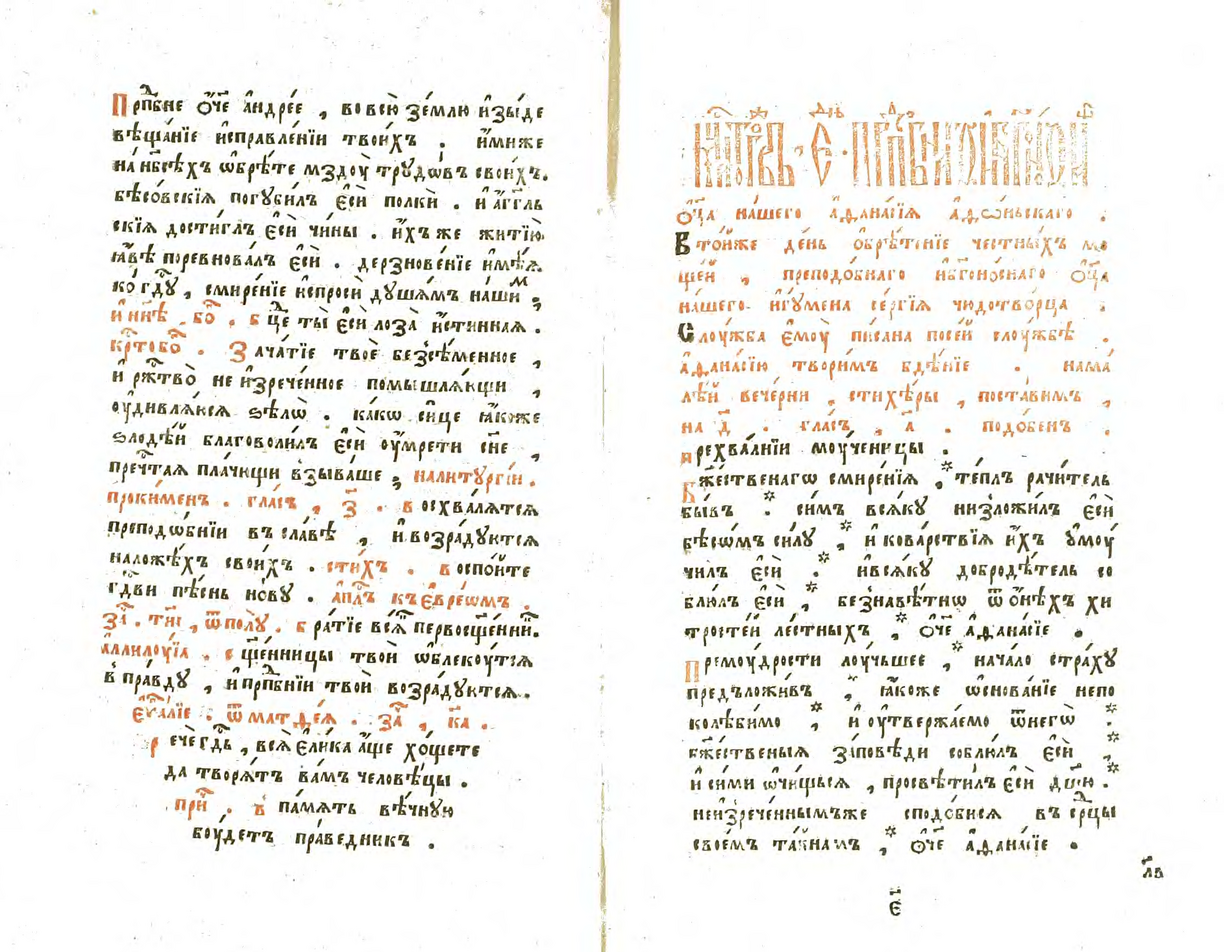 Прпⷣбне ѻ҆́ч҃е а҆ндре́е , во всю̀ зе́млю и҆зы́де
вѣща́нїе и҆справле́нїи твои́хъ . и҆́миже
на нб҃сѣ́хъ ѡ҆брѣ́те мздоу̀ трꙋдѡ́въ свои́хъ.
бѣсо́вскїѧ погꙋби́лъ є҆сѝ полкѝ . и҆ а҆́гг҃ль
скїѧ дости́глъ є҆сѝ чи́ны . и҆́хъже житїю̀
ꙗ҆́вѣ поревнова́лъ є҆сѝ . дерзнове́нїе и҆мѣ́ѧ
ко гдⷭ҇ꙋ , смире́нїе и҆спросѝ дꙋша́мъ на́шиⷨ ,
и҆ нн҃ѣ . боⷢ҇ . Бц҃е ты̀ є҆сѝ лоза̀ и҆́стиннаѧ .
крⷭ҇тобоⷢ҇ . Зача́тїе твоѐ безсѣ́менное ,
и҆ ржⷭ҇тво̀ неи҆зрече́нное помышлѧ́ющи ,
оу҆дивлѧ́юсѧ ѕѣлѡ̀ . ка́кѡ си́це ꙗ҆́коже
ѕлодѣ́й благоволи́лъ є҆сѝ оу҆мре́ти сн҃е ,
пречⷭ҇таѧ пла́чющи взыва́ше , на литꙋргі́и .
проки́менъ . гла́съ , з҃ . восхва́лѧтсѧ
преподо́бнїи въ сла́вѣ , и҆ возра́дꙋютсѧ
на ло́жѣхъ свои́хъ . сти́хъ . воспо́ите
гдⷭ҇ви пѣ́снь но́вꙋ . а҆пⷭ҇лъ къ є҆вре́ѡмъ .
заⷱ҇ . тиі҃ , ѿ по́лꙋ . бра́тїе всѧ́къ первосщ҃е́нни́.
аллилоу́їа . сщ҃е́нницы твоѝ ѡ҆блекоу́тсѧ
в пра́вдꙋ , и҆ прпⷣбнїи твоѝ возра́дꙋютсѧ .
є҆ѵⷢ҇а́лїе . ѿ матѳе́ѧ . заⷱ҇ , ка҃ .
речѐ гдⷭ҇ь , всѧ̀ є҆ли́ка а҆́ще хо́щете
да творѧ́тъ ва́мъ человѣ́цы .
при́ . в па́мѧть вѣ́чнꙋю
боу́детъ пра́ведникъ .
ѻ҆ц҃а̀ на́шего а҆ѳана́сїѧ а҆ѳѡ́ньскаго .
В то́йже де́нь ѻ҆брѣ́тенїе честны́хъ мо
ще́й , преподо́бнаго и҆ бг҃оно́снаго ѻ҆ц҃а̀
на́шего . и҆гꙋ́мена се́ргїѧ чюдотво́рца .
Слоу́жба є҆моу̀ пи́сана по се́й слоу́жбѣ .
а҆ѳана́сїю твори́мъ бдѣ́нїе . на ма́
лѣ́й вече́рни , стихѣ́ры , поста́вимъ ,
на д҃ . гла́съ , а҃ . подо́бенъ .
прехва́лнїи моу́ченицы .
Бж҃е́ственагѡ смире́нїѧ , * те́плъ рачи́тель
бы́въ . * си́мъ всѧ́кꙋ низложи́лъ є҆сѝ
бѣсѡ́мъ си́лꙋ , * и҆ кова́рствїѧ и҆́хъ ꙋ҆моу́
чилъ є҆сѝ . * и҆ всѧ́кꙋ добродѣ́тель со
блю́лъ є҆сѝ , * безнавѣ́тнѡ ѿ ѻ҆нѣ́хъ хи
тросте́й ле́стныхъ , * ѻ҆́ч҃е а҆ѳана́сїе .
Премоу́дрости лоу́чьшее , * нача́ло стра́хꙋ
предъложи́въ , * ꙗ҆́коже ѡ҆снова́нїе непо
коле́бимо , * и҆ оу҆твержа́емо ѿ негѡ̀ . *
бж҃е́ственыѧ за́повѣди соблю́лъ є҆сѝ *
и҆ си́ми ѡ҆чи́щьсѧ , просвѣти́лъ є҆сѝ дш҃ю . *
неизрече́ннымъже сподо́бисѧ въ срⷣцы
свое́мъ та́йнамъ , * ѻ҆́ч҃е а҆ѳана́сїе .
лв
є҃